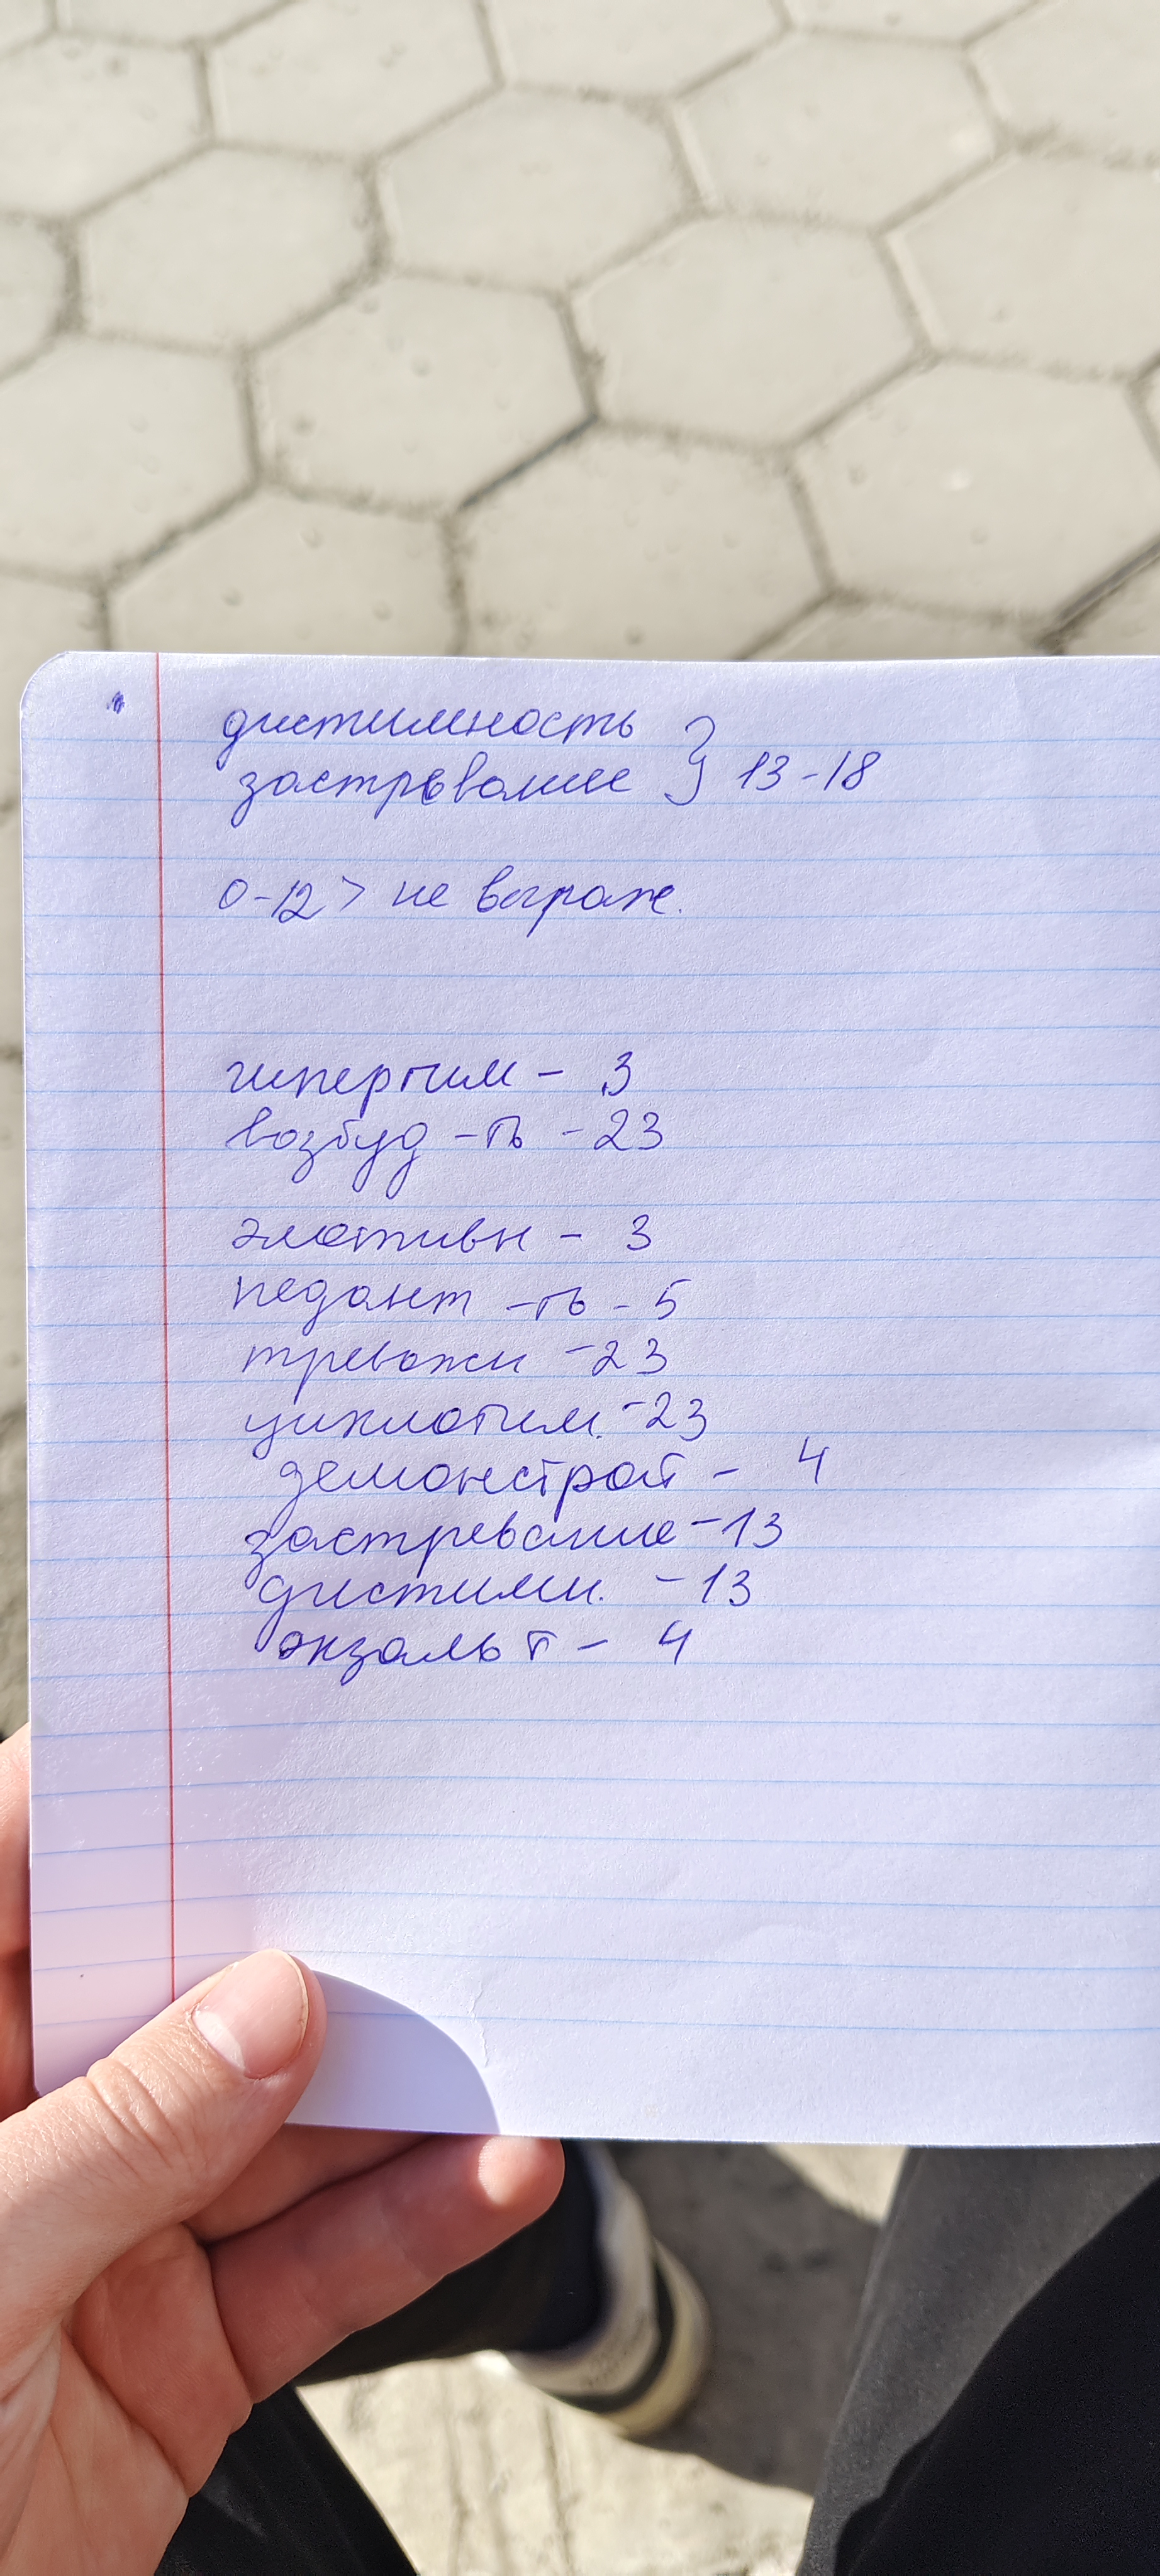 дистимность
застрьвание } 13-18
0-12 > не выраж.
гипертим - 3
возбуд-ть - 23
эмотивн - 3
педант -ть - 5
тревожн - 23
циклотим. - 23
демонстрат - 4
застревание - 13
дистимн. - 13
экзальт - 4